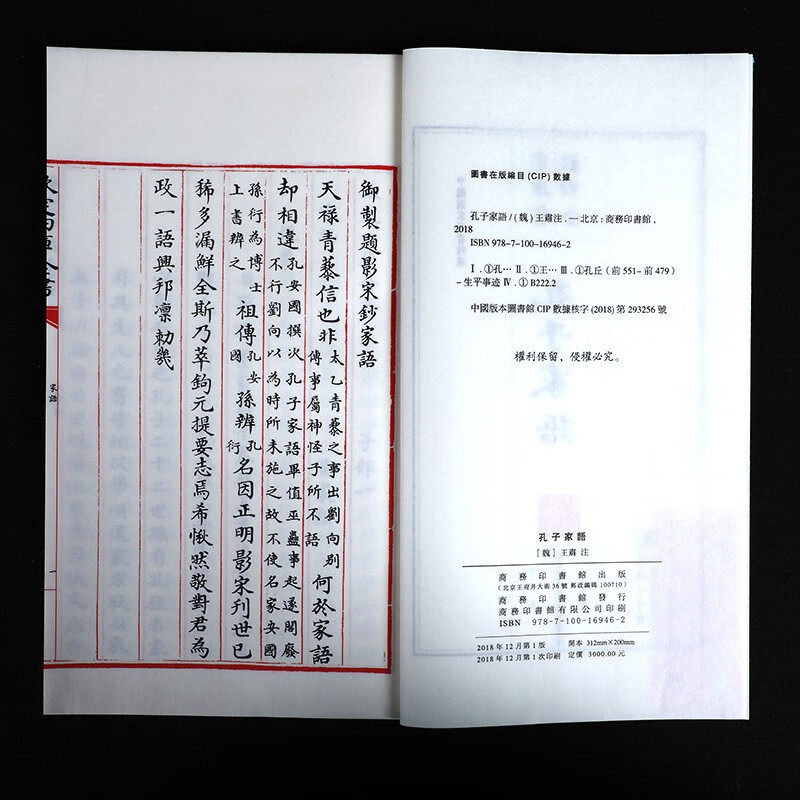 圖書在版編目(CIP)數據
孔子家語/(魏)王肅注.—北京:商務印書館,
2018
ISBN 978-7-100-16946-2
Ⅰ.①孔… Ⅱ.①王… Ⅲ.①孔丘(前551-前479)
-生平事迹 Ⅳ.①B222.2
中國版本圖書館CIP數據核字(2018)第293256號
權利保留,侵權必究。
孔子家語
[魏]王肅 注
商務印書館出版
(北京王府井大街36號 郵政編碼100710)
商務印書館發行
商務印書館有限公司印刷
ISBN 978-7-100-16946-2
2018年12月第1版 開本 312mm×200mm
2018年12月第1次印刷 定價 3000.00元
御製題影宋鈔家語
天禄青藜信也非太乙青藜之事出劉向别傳事屬神怪子所不語何於家語
却相違孔安國撰次孔子家語畢值巫蠱事起遂閣廢不行劉向以為時所未施之故不使名家安國
孫衍為博士上書辨之祖傳孔安國孫辨孔衍名因正明影宋刊世已
稀多漏鮮全斯乃萃鈎元提要志焉希愀然敬對君為
政一語興邦凜勅幾
家語